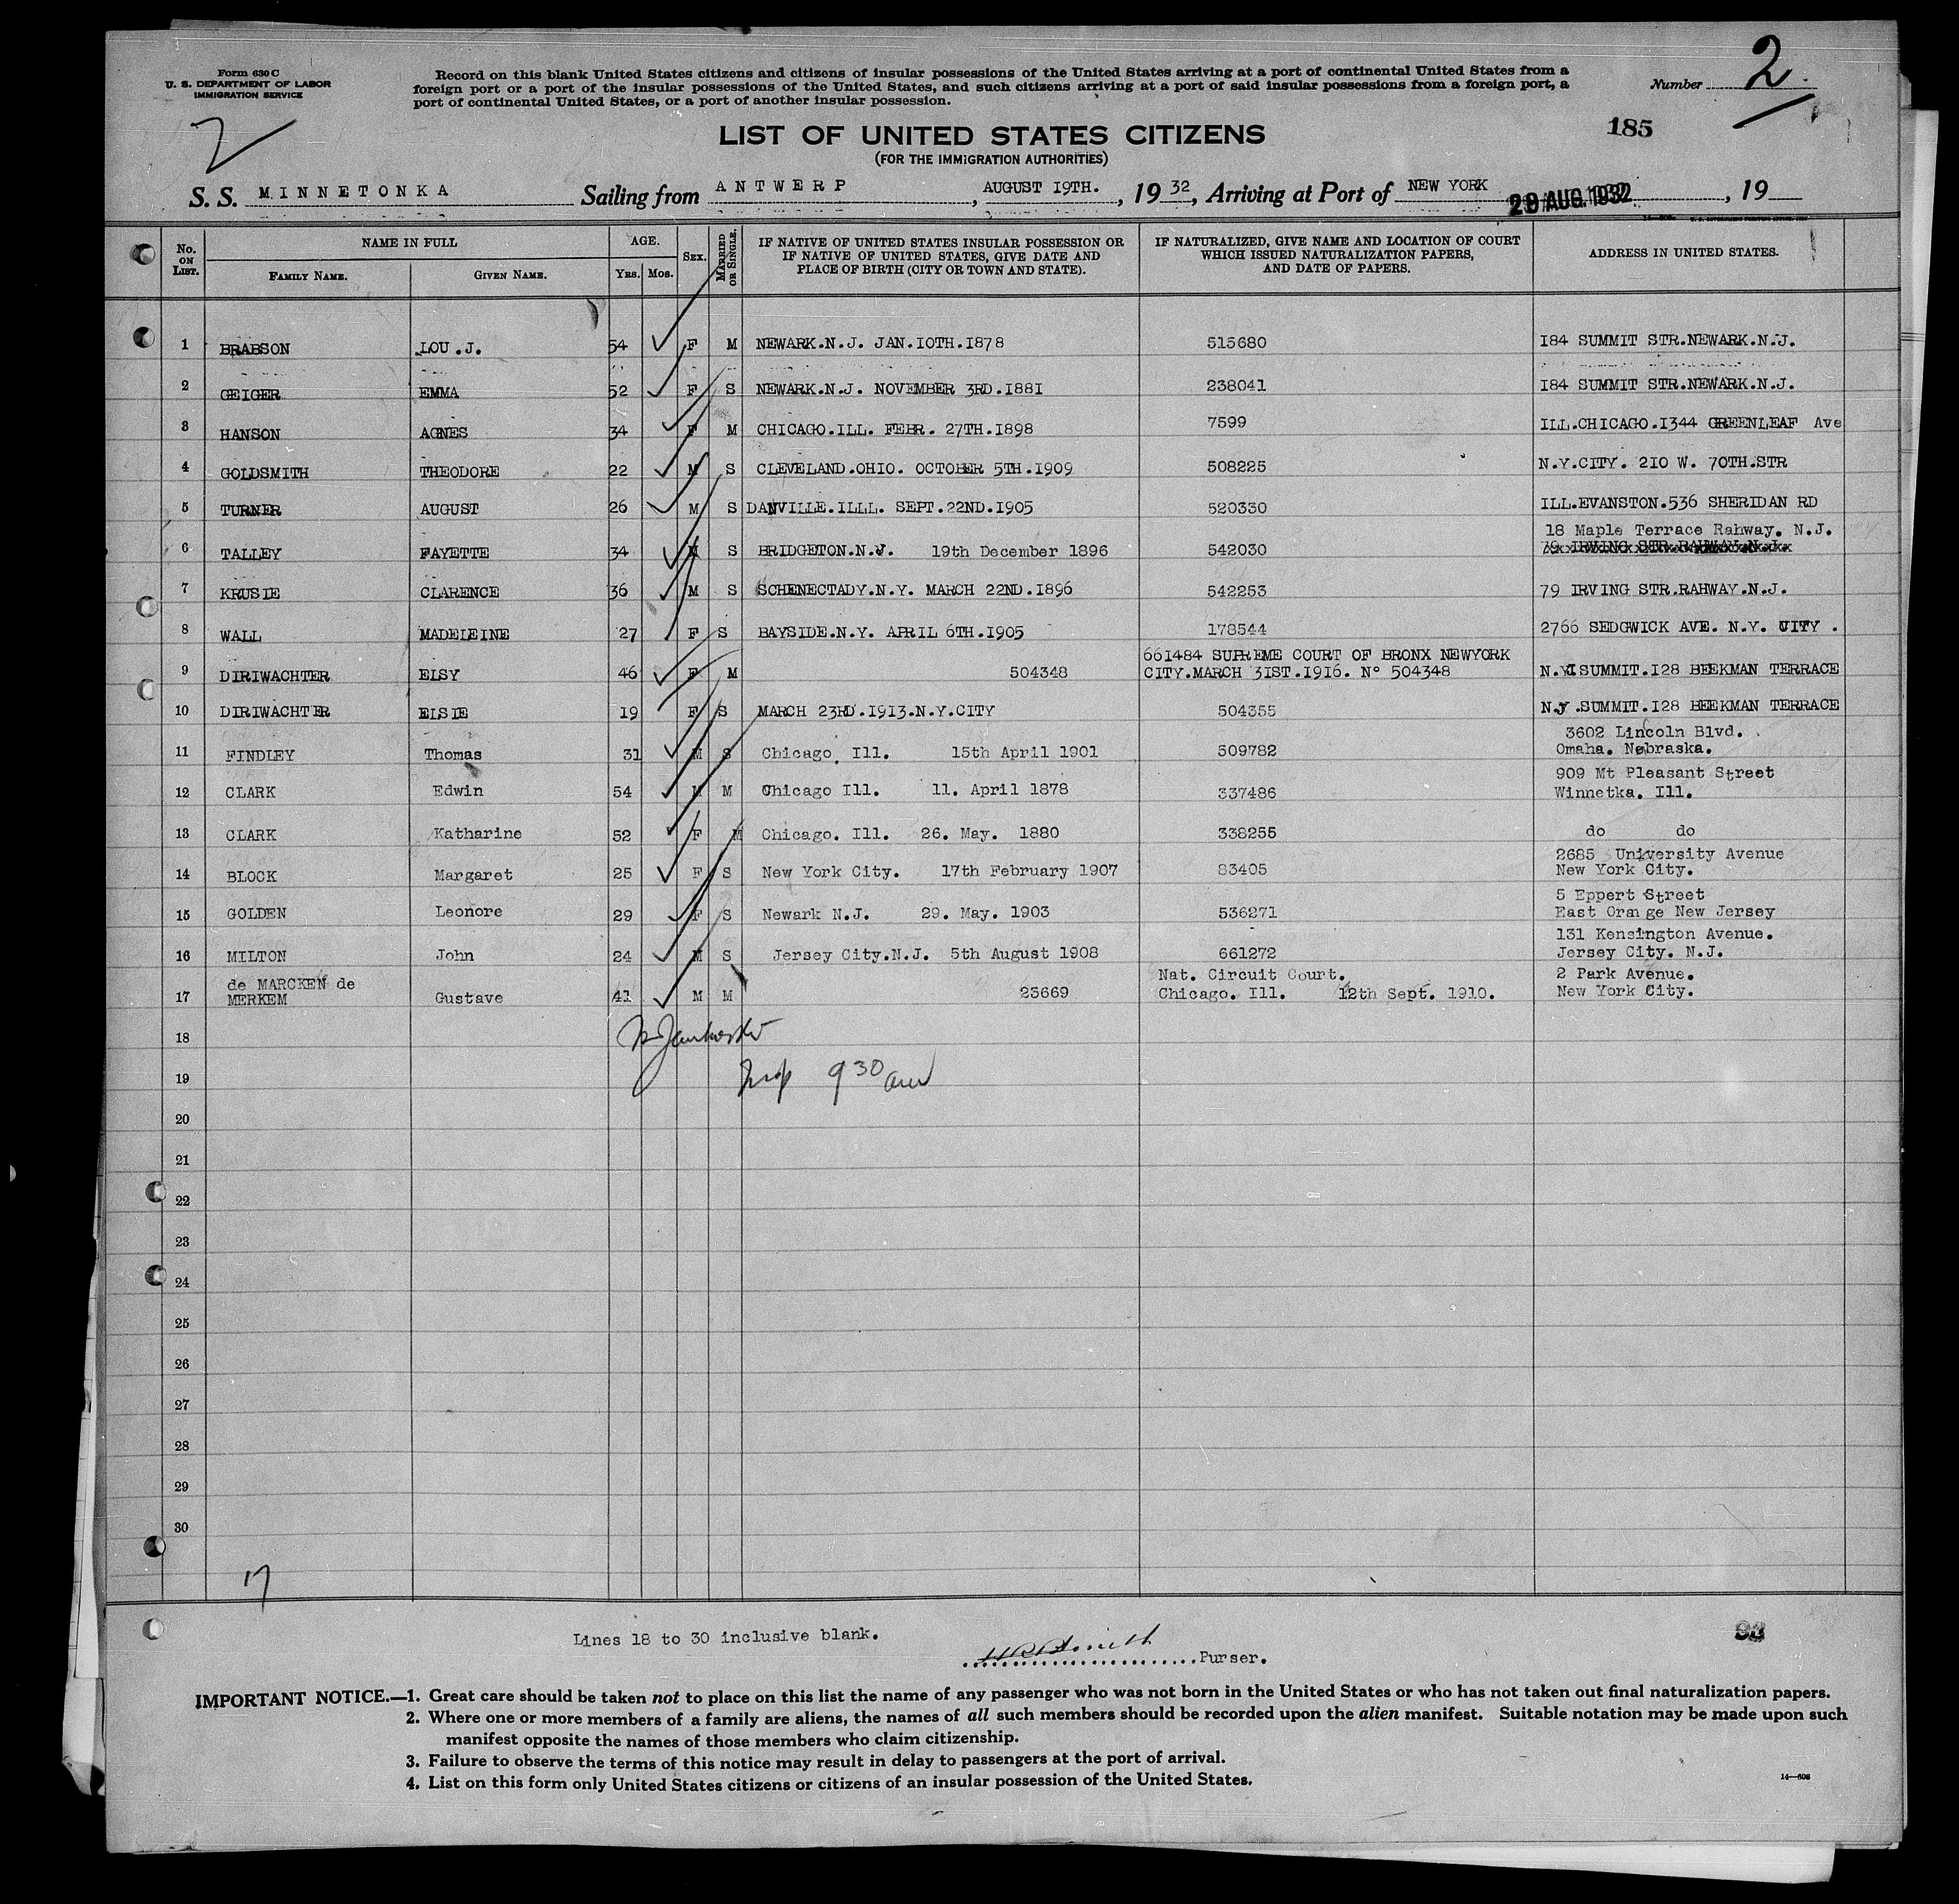 Form 630 C
U. S. DEPARTMENT OF LABOR
IMMIGRATION SERVICE
Record on this blank United States citizens and citizens of insular possessions of the United States arriving at a port of continental United States from a
foreign port or a port of the insular possessions of the United States, and such citizens arriving at a port of said insular possessions from a foreign port, a
port of continental United States, or a port of another insular possession.
Number 2
2
LIST OF UNITED STATES CITIZENS
185
(FOR THE IMMIGRATION AUTHORITIES)
S. S. MINNETONKA Sailing from ANTWERP, AUGUST I9TH., 19 32, Arriving at Port of NEW YORK 29 AUG. 1932, 19
No. ON LIST. NAME IN FULL FAMILY NAME. GIVEN NAME. AGE. YRS. MOS. SEX. MARRIED OR SINGLE. IF NATIVE OF UNITED STATES INSULAR POSSESSION OR IF NATIVE OF UNITED STATES, GIVE DATE AND PLACE OF BIRTH (CITY OR TOWN AND STATE). IF NATURALIZED, GIVE NAME AND LOCATION OF COURT WHICH ISSUED NATURALIZATION PAPERS, AND DATE OF PAPERS. ADDRESS IN UNITED STATES.
1 BRABSON LOU.J. 54 F M NEWARK.N.J. JAN.IOTH.I878 515680 I84 SUMMIT STR.NEWARK.N.J.
2 GEIGER EMMA 52 F S NEWARK.N.J. NOVEMBER 3RD.I88I 238041 I84 SUMMIT STR.NEWARK.N.J.
3 HANSON AGNES 34 F M CHICAGO.ILL. FEBR. 27TH.I898 7599 ILL.CHICAGO.I344 GREENLEAF Ave
4 GOLDSMITH THEODORE 22 M S CLEVELAND.OHIO. OCTOBER 5TH.I909 508225 N.Y.CITY. 2I0 W. 70TH.STR
5 TURNER AUGUST 26 M S DANVILLE.ILLL. SEPT.22ND.I905 520330 ILL.EVANSTON.536 SHERIDAN RD
18 Maple Terrace Rahway. N.J.
6 TALLEY FAYETTE 34 M S BRIDGETON.N.J. 19th December 1896 542030 79 IRVING STR.RAHWAY.N.J.
7 KRUSIE CLARENCE 36 M S SCHENECTADY.N.Y. MARCH 22ND.I896 542253 79 IRVING STR.RAHWAY.N.J.
8 WALL MADELEINE 27 F S BAYSIDE.N.Y. APRIL 6TH.I905 178544 2766 SEDGWICK AVE. N.Y. CITY.
661484 SUPREME COURT OF BRONX NEWYORK
9 DIRIWACHTER ELSY 46 F M 504348 CITY.MARCH 3IST.I9I6. N° 504348 N.J.SUMMIT.I28 BEEKMAN TERRACE
10 DIRIWACHTER ELSIE 19 F S MARCH 23RD.I9I3.N.Y.CITY 504355 N.J.SUMMIT.I28 BEEKMAN TERRACE
3602 Lincoln Blvd.
11 FINDLEY Thomas 31 M S Chicago, Ill. 15th April 1901 509782 Omaha. Nebraska.
909 Mt Pleasant Street
12 CLARK Edwin 54 M M Chicago Ill. 11. April 1878 337486 Winnetka. Ill.
13 CLARK Katharine 52 F M Chicago. Ill. 26. May. 1880 338255 do do
2685 University Avenue
14 BLOCK Margaret 25 F S New York City. 17th February 1907 83405 New York City.
5 Eppert Street
15 GOLDEN Leonore 29 F S Newark N.J. 29. May. 1903 536271 East Orange New Jersey
131 Kensington Avenue.
16 MILTON John 24 M S Jersey City.N.J. 5th August 1908 661272 Jersey City. N.J.
de MARCKEN de Nat. Circuit Court. 2 Park Avenue.
17 MERKEM Gustave 41 M M 23669 Chicago. Ill. 12th Sept. 1910. New York City.
18
19 Insp 9 30 am
20
21
22
23
24
25
26
27
28
29
30
17
Lines 18 to 30 inclusive blank.
Smith Purser.
IMPORTANT NOTICE.—1. Great care should be taken not to place on this list the name of any passenger who was not born in the United States or who has not taken out final naturalization papers.
2. Where one or more members of a family are aliens, the names of all such members should be recorded upon the alien manifest. Suitable notation may be made upon such
manifest opposite the names of those members who claim citizenship.
3. Failure to observe the terms of this notice may result in delay to passengers at the port of arrival.
4. List on this form only United States citizens or citizens of an insular possession of the United States.
14—608